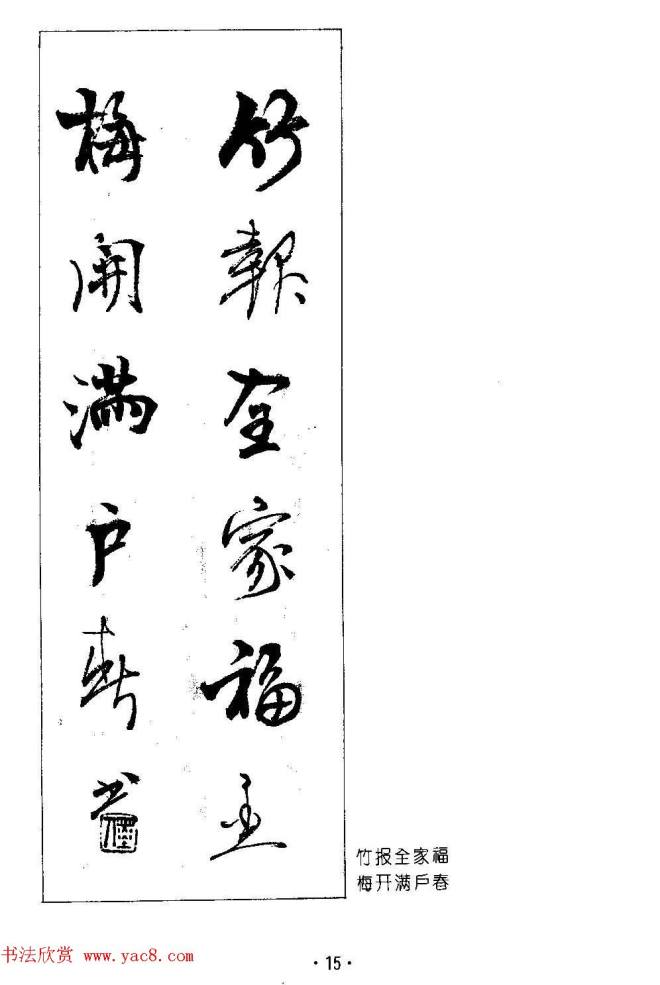 竹報全家福
梅開滿户春
竹报全家福
梅开满户春
书法欣赏 www.yac8.com
·15·